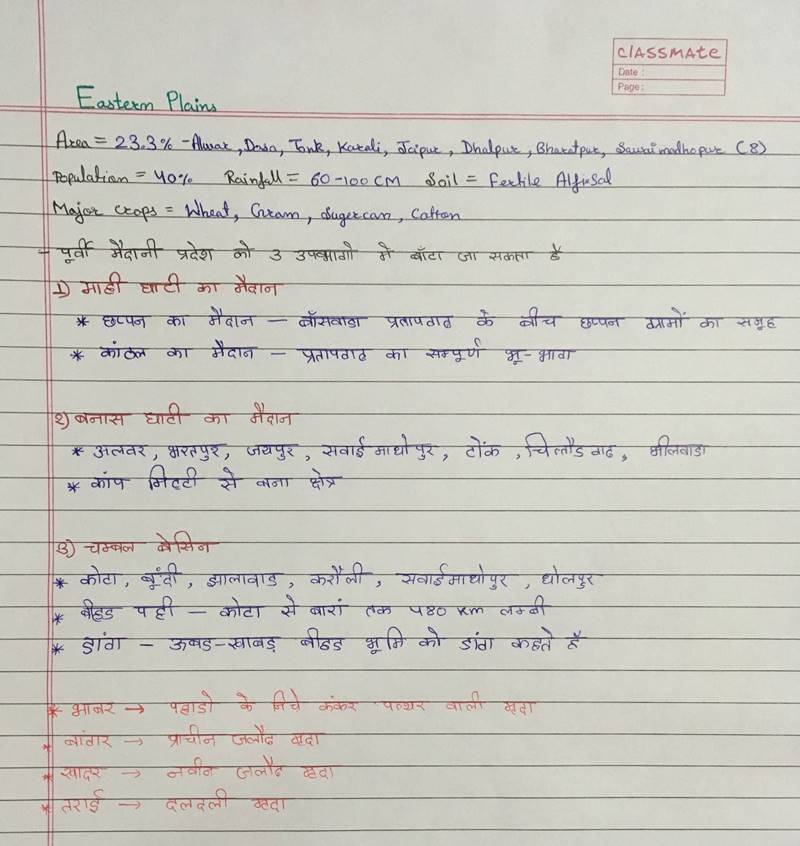 CLASSMATE
Date :
Page :
Eastern Plains
Area = 23.3% - Alwar, Dosa, Tonk, Karali, Jaipur, Dholpur, Bharatpur, Sawaimadhopur (8)
Population = 40% Rainfall = 60-100 CM Soil = Fertile Alfisol
Major crops = Wheat, Gram, Sugercan, Cotton
- पूर्वी मैदानी प्रदेश को 3 उपभागो मे बाँटा जा सकता है
1) माही घाटी का मैदान
* छप्पन का मैदान – बाँसवाडा प्रतापगढ के बीच छप्पन ग्रामों का समूह
* कांठल का मैदान – प्रतापगढ का सम्पूर्ण भू-भाग
2) बनास घाटी का मैदान
* अलवर, भरतपुर, जयपुर, सवाई माधोपुर, टोंक, चित्तौडगढ, भीलवाडा
* कांप मिटटी से बना क्षेत्र
3) चम्बल बेसिन
* कोटा, बूंदी, झालावाड, करौली, सवाईमाधोपुर, धोलपुर
* बीहड पट्टी – कोटा से बारां तक 480 KM लम्बी
* डांग – ऊबड-खाबड़ बीहड भूमि को डांग कहते है
* भाबर → पहाडो के निचे कंकर पत्थर वाली मृदा
* बांगर → प्राचीन जलौढ मृदा
* खादर → नवीन जलौढ मृदा
* तराई → दलदली मृदा